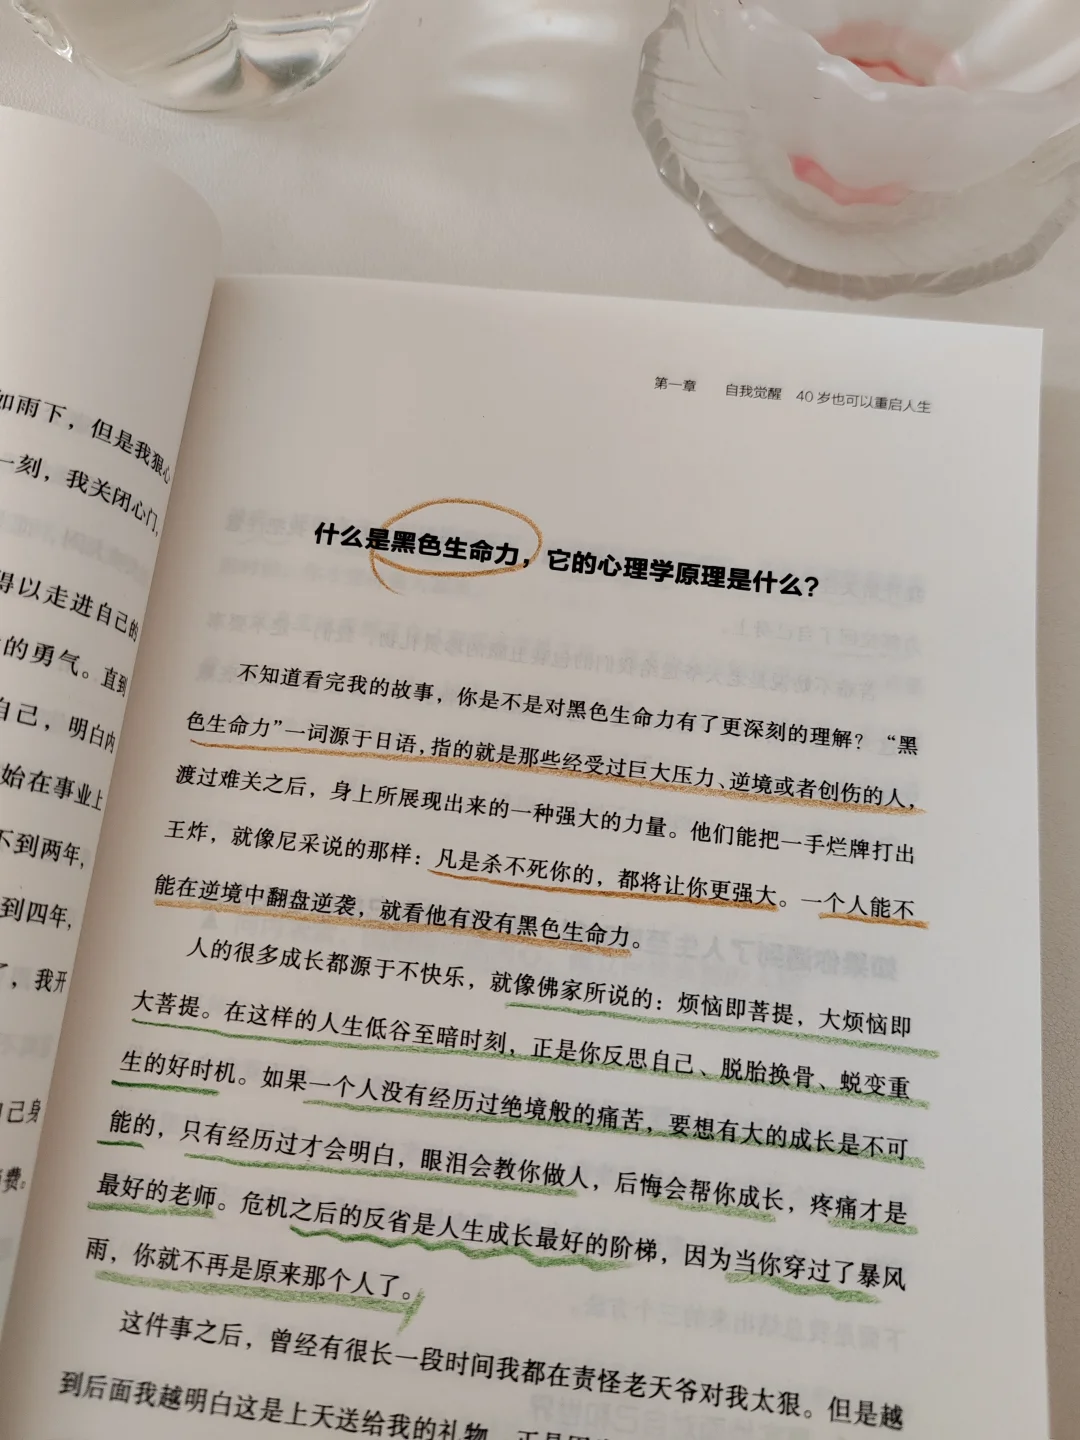 如雨下，但是我狠心
一刻，我关闭心门，
得以走进自己的
的勇气。直到
自己，明白内
始在事业上
不到两年，
到四年，
了，我开
己身
费。
第一章 自我觉醒 40 岁也可以重启人生
什么是黑色生命力，它的心理学原理是什么？
不知道看完我的故事，你是不是对黑色生命力有了更深刻的理解？“黑
色生命力”一词源于日语，指的就是那些经受过巨大压力、逆境或者创伤的人，
渡过难关之后，身上所展现出来的一种强大的力量。他们能把一手烂牌打出
王炸，就像尼采说的那样：凡是杀不死你的，都将让你更强大。一个人能不
能在逆境中翻盘逆袭，就看他有没有黑色生命力。
人的很多成长都源于不快乐，就像佛家所说的：烦恼即菩提，大烦恼即
大菩提。在这样的人生低谷至暗时刻，正是你反思自己、脱胎换骨、蜕变重
生的好时机。如果一个人没有经历过绝境般的痛苦，要想有大的成长是不可
能的，只有经历过才会明白，眼泪会教你做人，后悔会帮你成长，疼痛才是
最好的老师。危机之后的反省是人生成长最好的阶梯，因为当你穿过了暴风
雨，你就不再是原来那个人了。
这件事之后，曾经有很长一段时间我都在责怪老天爷对我太狠。但是越
到后面我越明白这是上天送给我的礼物，正是因